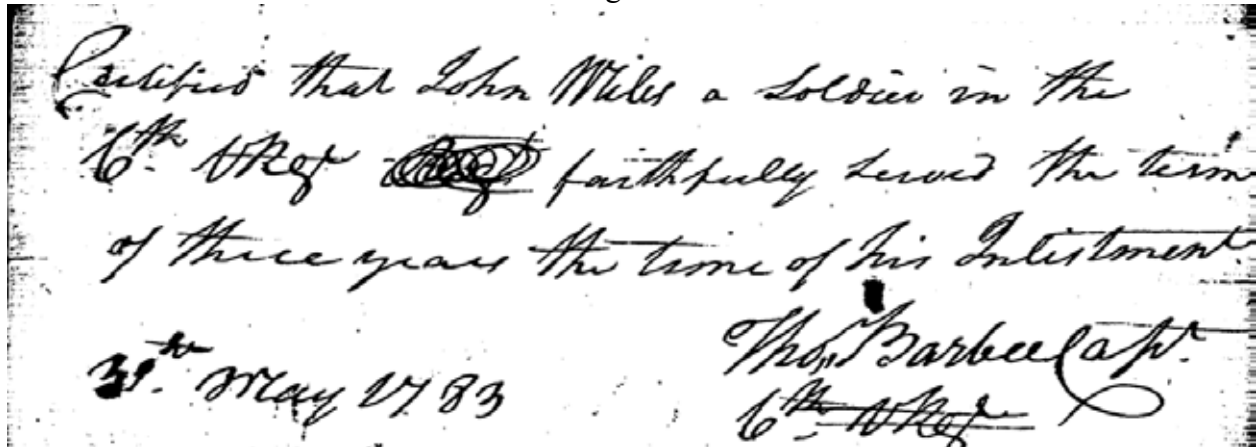 Certified that John Miles a Soldier in the
6th VReg faithfully served the term
of three years the time of his Inlistment
Tho. Barbee Capt.
May 1783
6th VReg